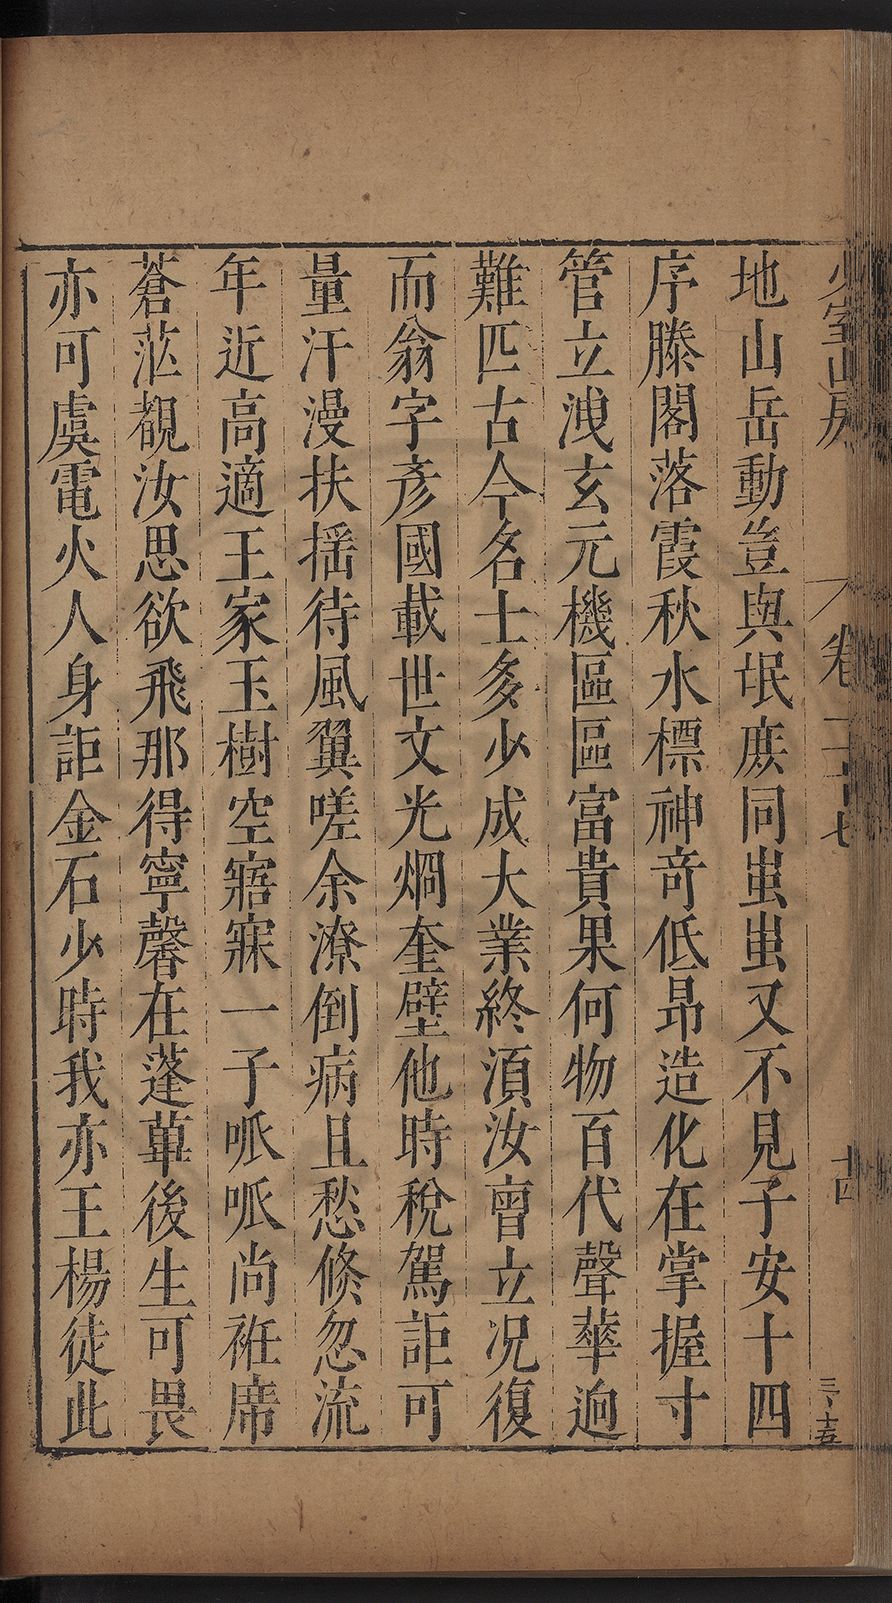 少室山房 卷二十七 十四
三、十五
地山岳動豈與氓庶同蚩蚩又不見子安十四
序滕閣落霞秋水標神奇低昂造化在掌握寸
管立洩玄元機區區富貴果何物百代聲華逈
難匹古今名士多少成大業終湏汝曺立况復
而翁字彥國載世文光烱奎壁他時稅駕詎可
量汗漫扶揺待風翼嗟余潦倒病且愁倐忽流
年近高適王家玉樹空寤寐一子呱呱尚袵席
蒼茫覩汝思欲飛那得寧馨在蓬蓽後生可畏
亦可虞電火人身詎金石少時我亦王楊徒此